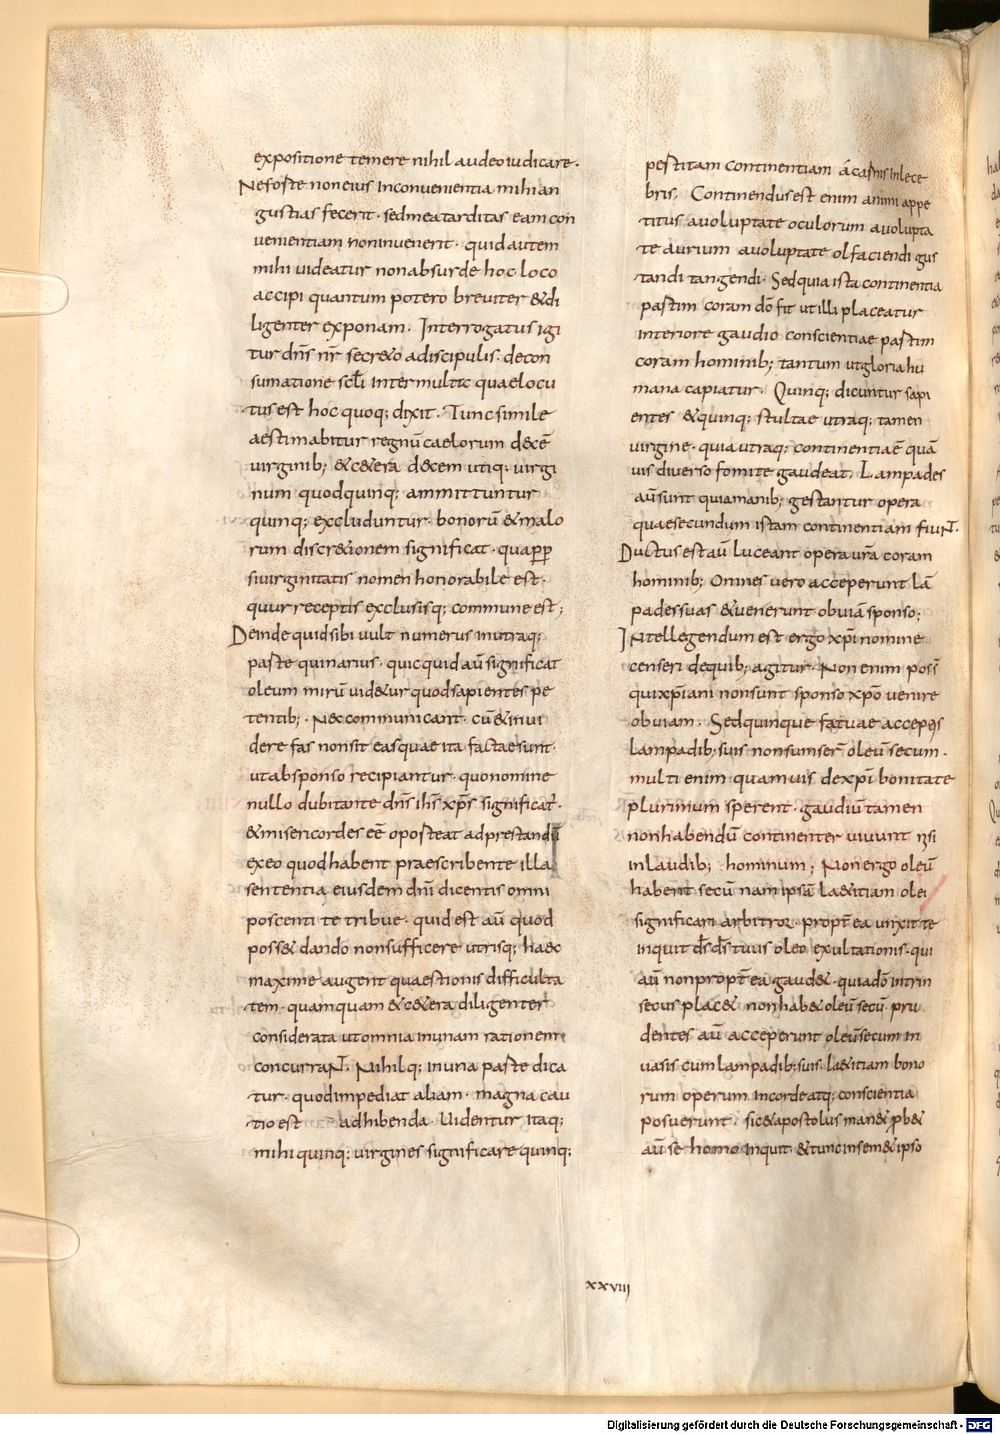 expositione temere nihil audeo iudicare.
Ne forte non eius inconvenientia mihi an
gustias fecerit · sed mea tarditas eam con
venientiam non invenerit · quid autem
mihi videatur non absurde hoc loco
accipi quantum potero breviter & di
ligenter exponam. Interrogatus igi
tur dn̄s nr̄ secr&o a discipulis · de con
sumatione sc̄li inter multa quae locu
tus est hoc quoq; dixit. Tunc simile
aestimabitur regnū caelorum decē
virginib; & c&era decem utiq; virgi
num quod quinq; ammittuntur
quinq; excluduntur · bonorū & malo
rum discr&ionem significat · quap̱p̱
si virginitatis nomen honorabile est ·
quur receptis exclusisq; commune est;
Deinde quid sibi vult numerus in utraq;
parte quinarius · quicquid aū significat
oleum mirū vid&ur quod sapientes pe
tentib; · Nec communicant · cū & invi
dere fas non sit eas quae ita factae sunt ·
ut ab sponso recipiantur · quo nomine
nullo dubitante dn̄s ih̄s xp̄s significat̄ ·
& misericordes eē oporteat ad prestandū
ex eo quod habent praescribente illa
sententia eiusdem dn̄i dicentis omni
poscenti te tribue · quid est aū quod
poss& dando non sufficere utrisq; haec
maxime augent quaestionis difficulta
tem · quamquam & c&era diligenter
considerata ut omnia in unam rationem
concurraNT. Nihilq; in una parte dica
tur · quod impediat aliam · magna cau
tio est adhibenda · Videntur itaq;
mihi quinq; virgines significare quinq;
pertitam continentiam á carnis inlece
bris. Continendus est enim animi appe
titus a voluptate oculorum a volupta
te aurium a voluptate olfaciendi gus
tandi tangendi · Sed quia ista continentia
partim coram dō fit ut illi placeatur
interiore gaudio conscientiae partim
coram hominib; tantum ut gloria hu
mana capiatur. Quinq; dicuntur sapi
entes & quinq; stultae utraq; tamen
virgine · quia utraq; continentiaē quā
vis diverso fomite gaudeat. Lampades
aū sunt quia manib; gestantur opera
quae secundum istam continentiam fiuNT.
Ductus est aū luceant opera vr̄a coram
hominib; Omnes vero acceperunt lā
pades suas & venerunt obviā sponso;
INtellegendum est ergo xp̄i nomine
censeri de quib; agitur · Non enim poss̄
qui xp̄iani non sunt sponso xp̄o venire
obviam. Sed quinque fatuae acceptis
lampadib; suis non sumser̄ oleū secum.
multi enim quamvis de xp̄i bonitate
plurimum sperent · gaudiū tamen
non habendū continenter vivunt nisi
in laudib; hominum; Non ergo oleū
habent secū nam ipsū la&itiam olei
significari arbitror · propt̄ ea unxit te
inquit d̄s d̄s tuus oleo exultationis · qui
aū non propt̄ ea gaud& · quia dō intrin
secus plac& non hab& oleū secū · pru
dentes aū acceperunt oleū secum in
vasis cum lampadib; suis · la&itiam bono
rum operum in corde atq; conscientia
posuerunt · sic & apostolus man& p̱b&
aū se homo inquit & tunc in sem&ipso
xxviii
Digitalisierung gefördert durch die Deutsche Forschungsgemeinschaft - DFG